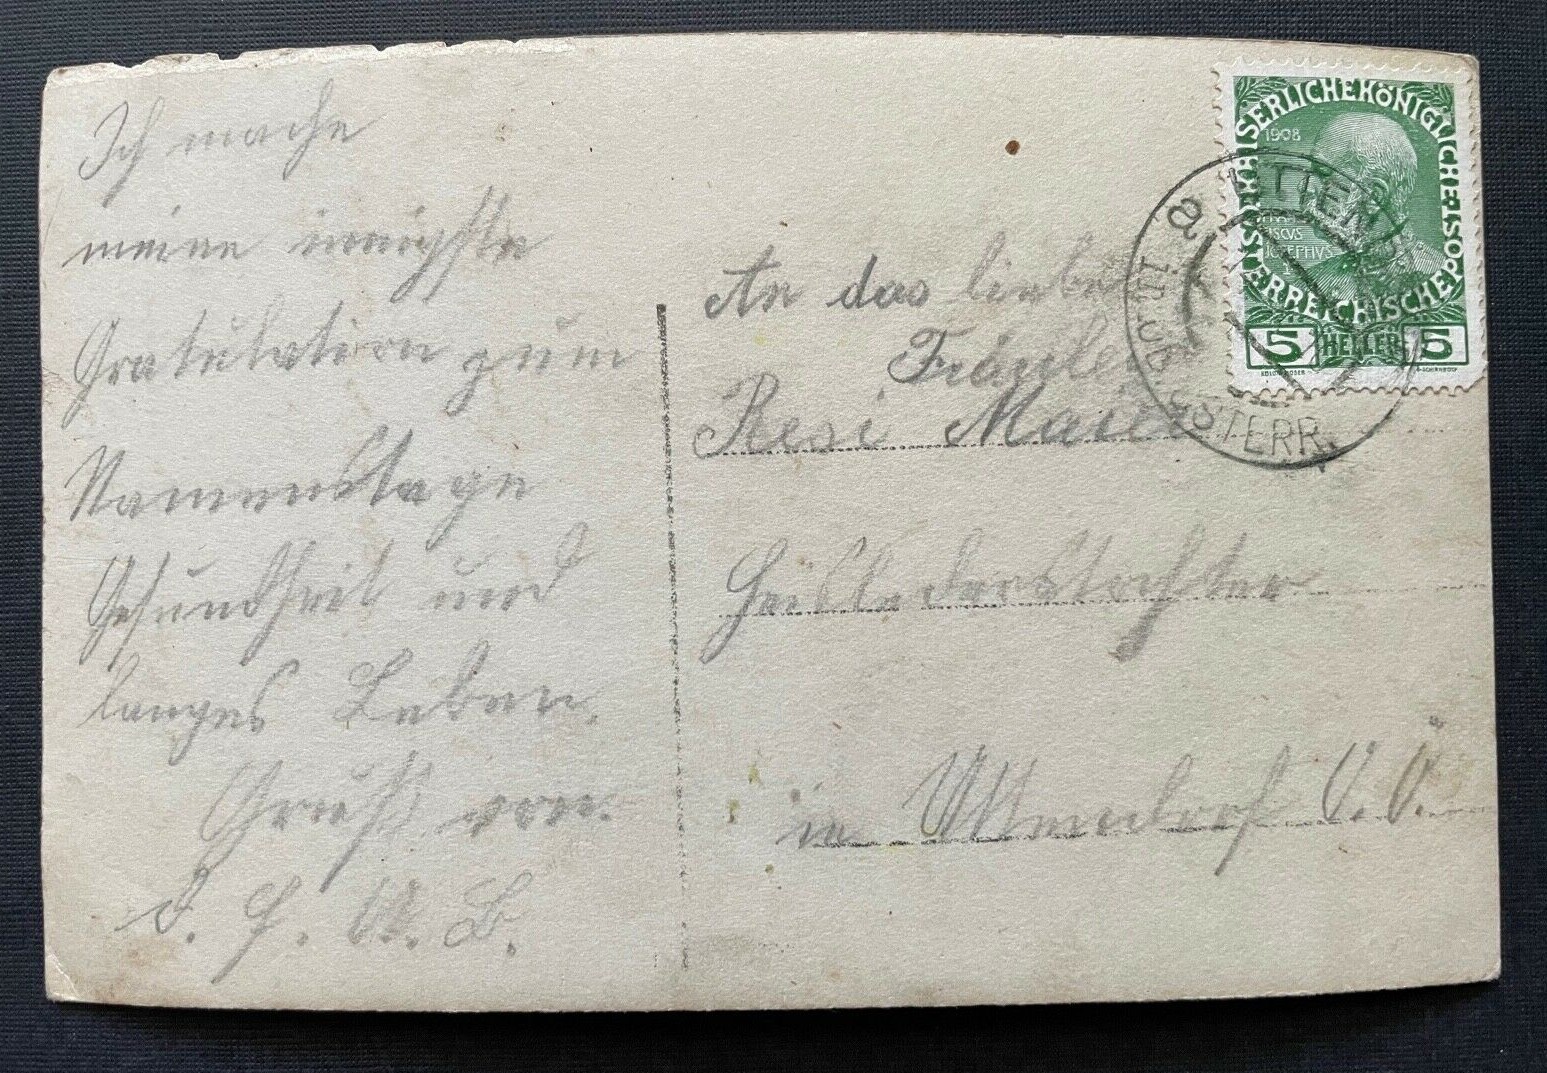 Ich mache
meine innigste
Gratulation zum
Namenstage
Gesundheit und
langes Leben.
Gruß von
An das liebe
Fräulein
Resi Maier
in Uttendorf O. Ö.
KAISERLICHE KÖNIGLICHE ÖSTERREICHISCHE POST
1908
FRANCISCVS
IOSEPHVS I
5 HELLER 5
ÖSTERR.